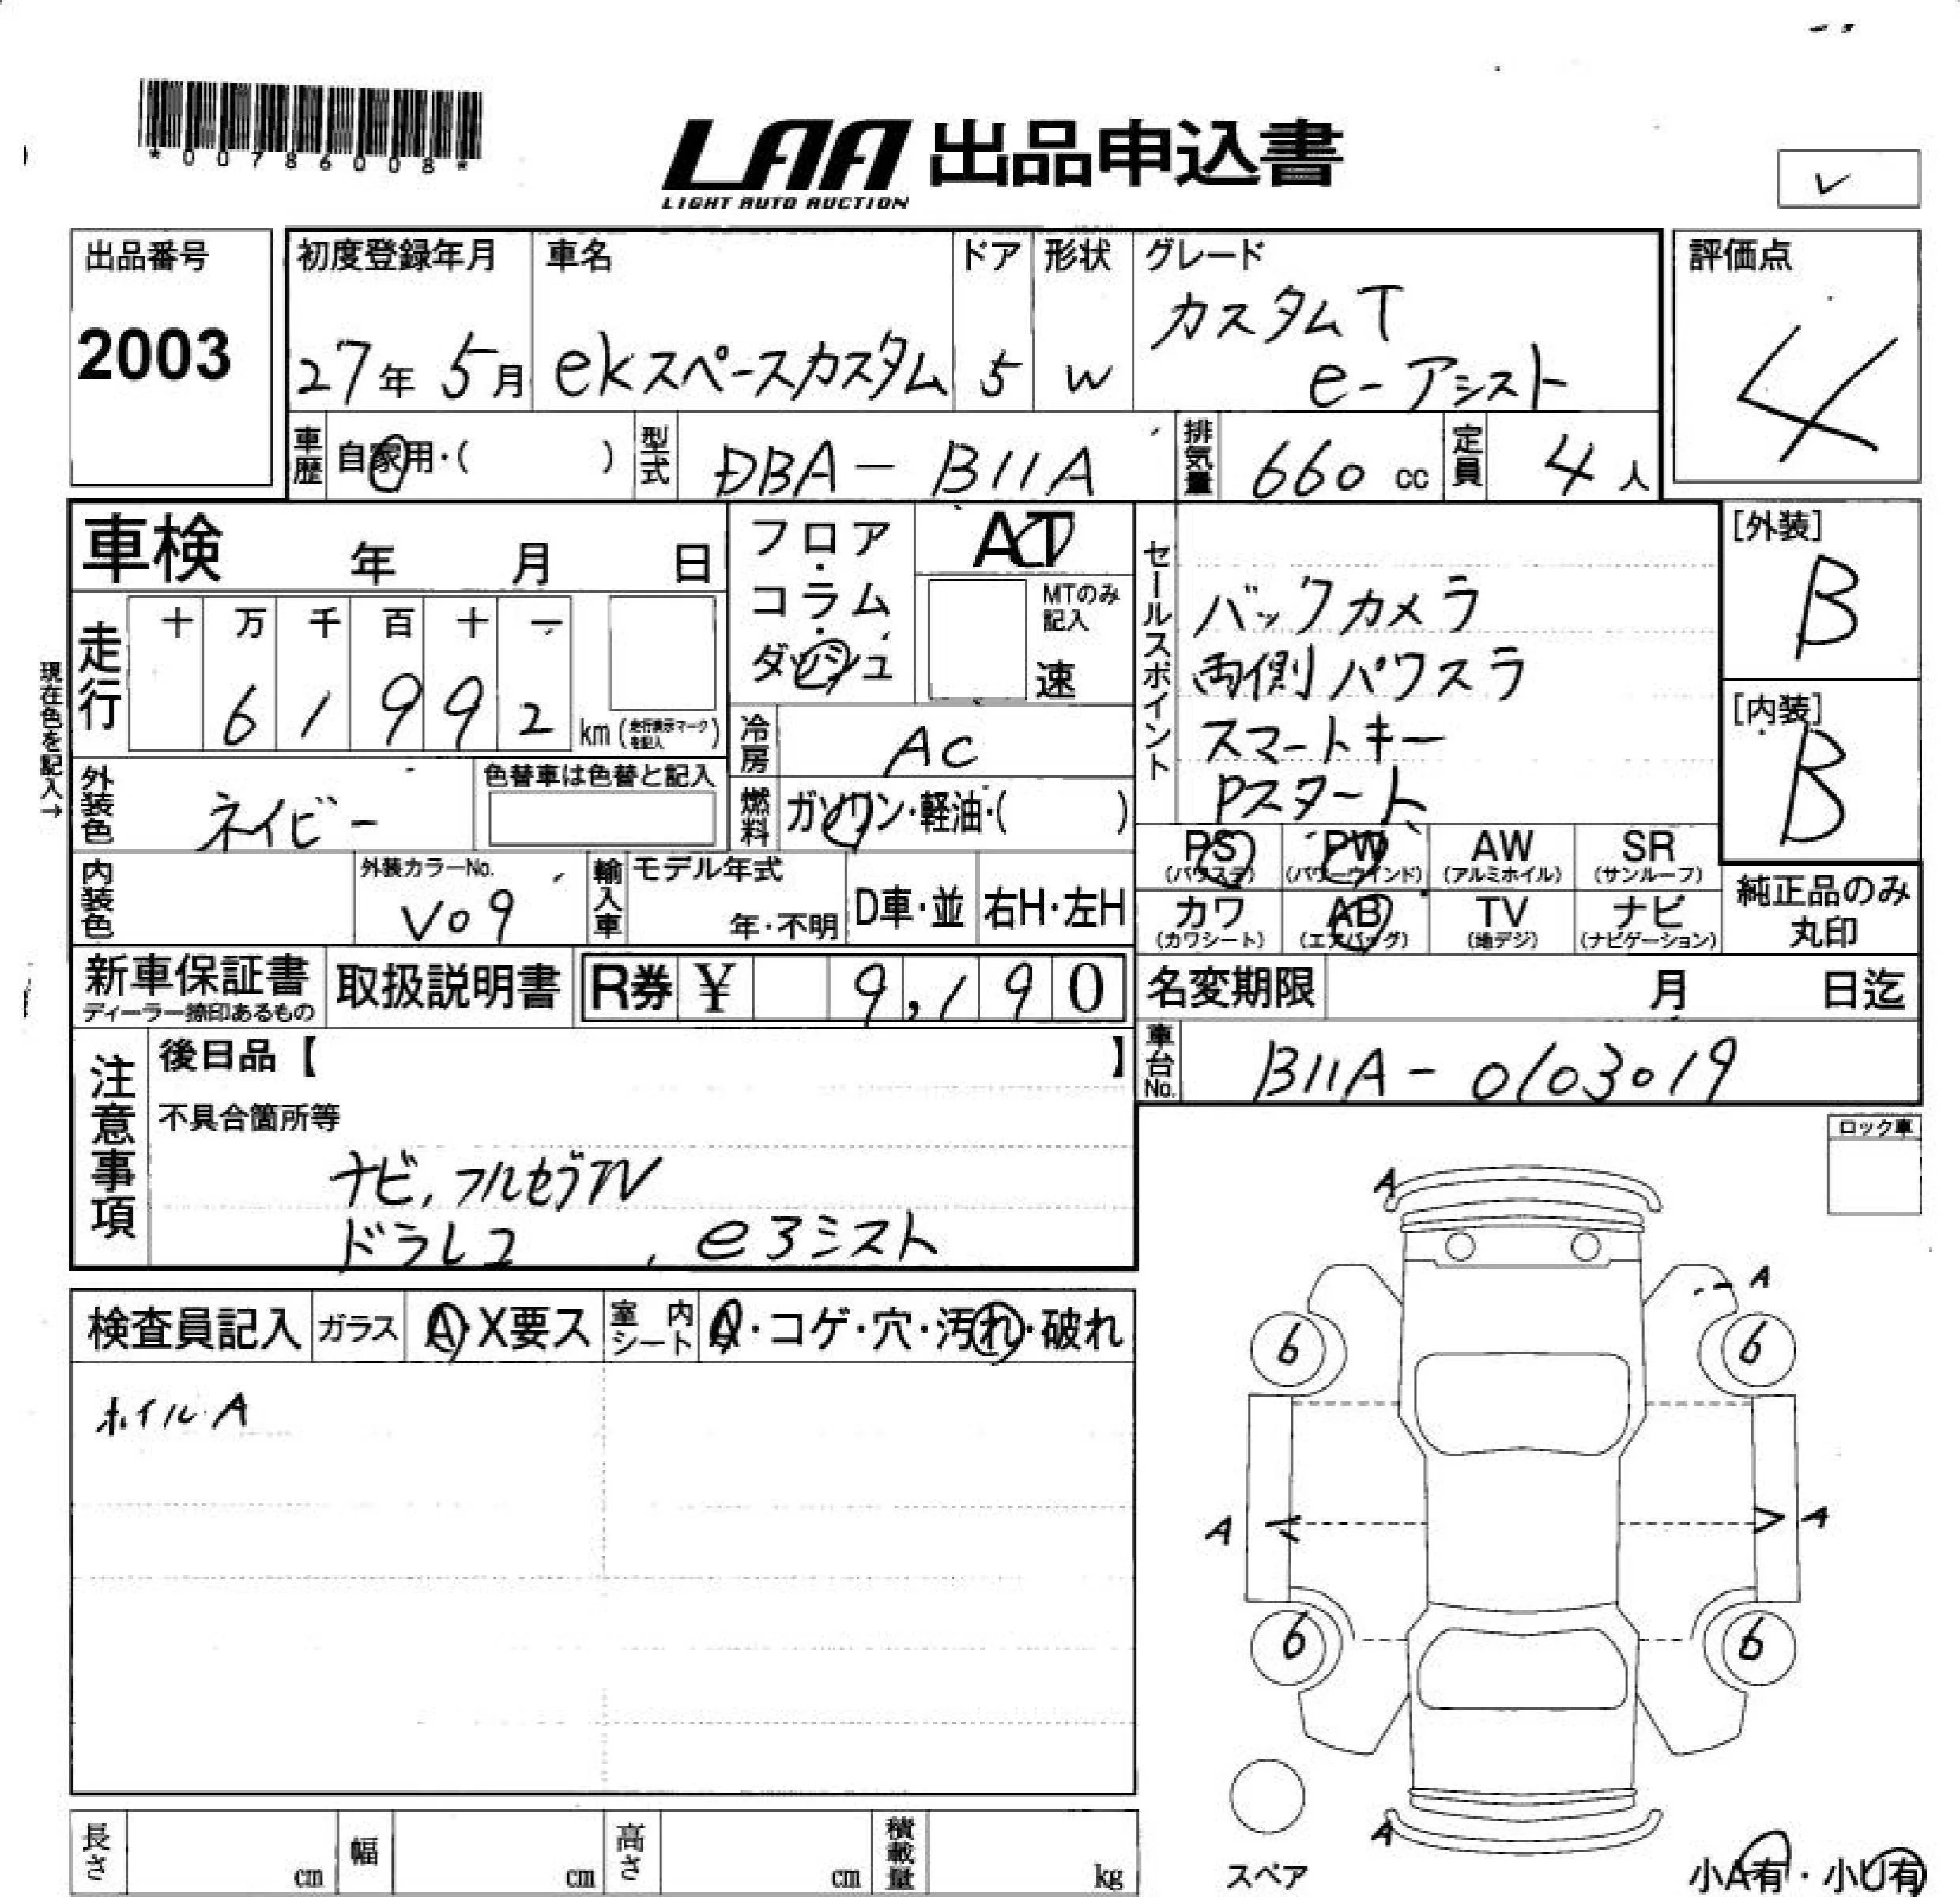 *00786008*
LAA 出品申込書
LIGHT AUTO AUCTION
✓
出品番号
2003
初度登録年月
27年 5月
車名
ekスペースカスタム
ドア
5
形状
W
グレード
カスタムT
e-アシスト
評価点
4
車歴 自家用・( )
型式 DBA-B11A
排気量 660 cc
定員 4人
車検 年 月 日
フロア・コラム・ダッシュ
AT
MTのみ記入
速
走行 十 万 千 百 十 一
6 1 9 9 2 km (走行表示マークを記入)
現在色を記入→
冷房 AC
外装色 ネイビー
色替車は色替と記入
燃料 ガソリン・軽油・( )
内装色
外装カラーNo.
V09
輸入車 モデル年式
年・不明
D車・並
右H・左H
セールスポイント
バックカメラ
両側パワスラ
スマートキー
Pスタート
[外装]
B
[内装]
B
PS (パワステ)
PW (パワーウインド)
AW (アルミホイル)
SR (サンルーフ)
カワ (カワシート)
AB (エアバッグ)
TV (地デジ)
ナビ (ナビゲーション)
純正品のみ
丸印
新車保証書
ディーラー捺印あるもの
取扱説明書
R券 ¥ 9,190
名変期限 月 日迄
車台No. B11A-0103019
注意事項
後日品【 】
不具合箇所等
ナビ, フルセグTV
ドラレコ , eヨミスト
検査員記入
ガラス A・X要ス
室内シート A・コゲ・穴・汚れ・破れ
ホイルA
ロック車
A
A
6 6
A A
6 6
A
スペア
小A有・小U有
長さ cm
幅 cm
高さ cm
積載量 kg